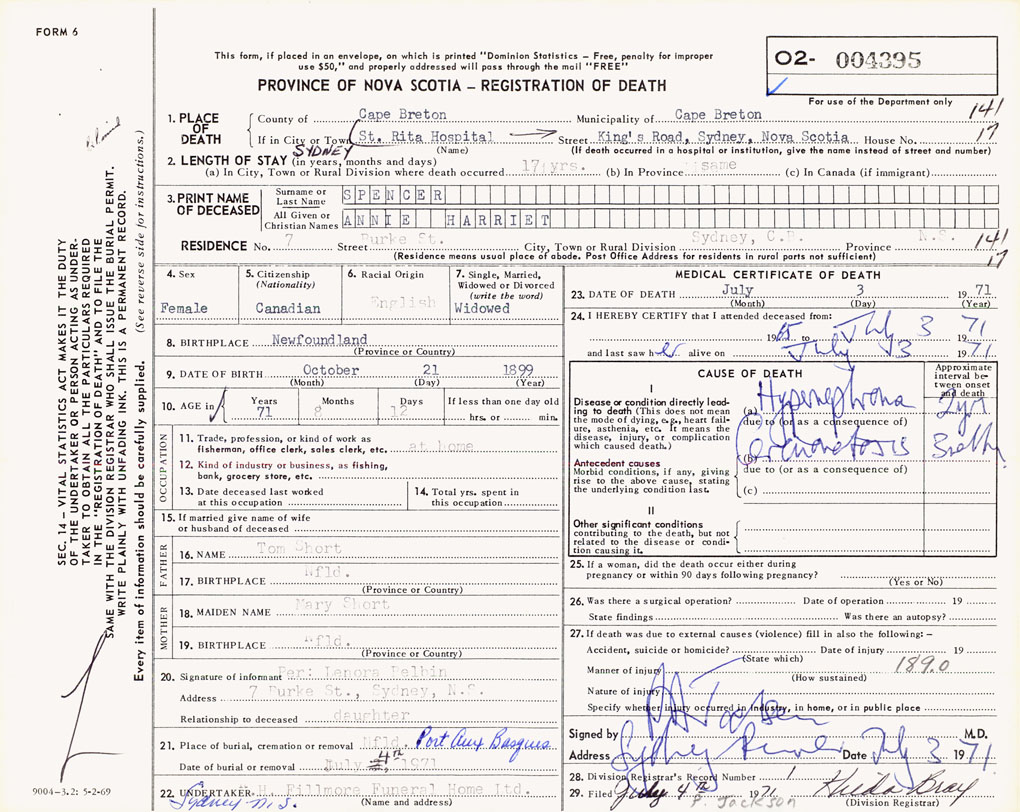 FORM 6
This form, if placed in an envelope, on which is printed "Dominion Statistics - Free, penalty for improper
use $50," and properly addressed will pass through the mail "FREE"
PROVINCE OF NOVA SCOTIA - REGISTRATION OF DEATH
02- 004395
For use of the Department only
141
17
1. PLACE OF DEATH
County of Cape Breton Municipality of Cape Breton
If in City or Town St. Rita Hospital Street King's Road, Sydney, Nova Scotia House No.
SYDNEY (Name) (If death occurred in a hospital or institution, give the name instead of street and number)
2. LENGTH OF STAY (in years, months and days)
(a) In City, Town or Rural Division where death occurred 17 yrs. (b) In Province same (c) In Canada (if immigrant)
3. PRINT NAME OF DECEASED
Surname or Last Name SPENCER
All Given or Christian Names ANNIE HARRIET
RESIDENCE No. 7 Street Burke St. City, Town or Rural Division Sydney, C.B. Province N.S. 141
(Residence means usual place of abode. Post Office Address for residents in rural parts not sufficient) 17
4. Sex
Female
5. Citizenship
(Nationality)
Canadian
6. Racial Origin
English
7. Single, Married,
Widowed or Divorced
(write the word)
Widowed
8. BIRTHPLACE Newfoundland
(Province or Country)
9. DATE OF BIRTH October 21 1899
(Month) (Day) (Year)
10. AGE in
Years Months Days If less than one day old
71 8 12 hrs. or min.
OCCUPATION
11. Trade, profession, or kind of work as
fisherman, office clerk, sales clerk, etc. at home
12. Kind of industry or business, as fishing,
bank, grocery store, etc.
13. Date deceased last worked
at this occupation
14. Total yrs. spent in
this occupation
15. If married give name of wife
or husband of deceased
FATHER
16. NAME Tom Short
17. BIRTHPLACE Nfld.
(Province or Country)
MOTHER
18. MAIDEN NAME Mary Short
19. BIRTHPLACE Nfld.
(Province or Country)
20. Signature of informant Per: Lenora Belbin
Address 7 Burke St., Sydney, N.S.
Relationship to deceased daughter
21. Place of burial, cremation or removal Nfld. Port Aux Basques
Date of burial or removal July 4th 1971
22. UNDERTAKER W.H. Fillmore Funeral Home Ltd.
Sydney N.S. (Name and address)
MEDICAL CERTIFICATE OF DEATH
23. DATE OF DEATH July 3 1971
(Month) (Day) (Year)
24. I HEREBY CERTIFY that I attended deceased from:
19 65 to July 3 1971
and last saw her alive on July 3 1971
CAUSE OF DEATH
Approximate
interval be-
tween onset
and death
I
Disease or condition directly lead-
ing to death (This does not mean
the mode of dying, e.g., heart fail-
ure, asthenia, etc. It means the
disease, injury, or complication
which caused death.)
(a) Hypernephroma 2 yrs
due to (or as a consequence of)
(b) Carcinomatosis
Antecedent causes
Morbid conditions, if any, giving
rise to the above cause, stating
the underlying condition last.
due to (or as a consequence of)
(c)
II
Other significant conditions
contributing to the death, but not
related to the disease or condi-
tion causing it.
25. If a woman, did the death occur either during
pregnancy or within 90 days following pregnancy?
(Yes or No)
26. Was there a surgical operation? Date of operation 19
State findings Was there an autopsy?
27. If death was due to external causes (violence) fill in also the following: -
Accident, suicide or homicide? Date of injury 19
(State which)
Manner of injury 189.0
(How sustained)
Nature of injury
Specify whether injury occurred in industry, in home, or in public place
Signed by M.D.
Address Sydney Date July 3 1971
28. Division Registrar's Record Number 1
29. Filed July 4th 1971 Hilda Bray
P. Jackson (Division Registrar)
SEC. 14 - VITAL STATISTICS ACT MAKES IT THE DUTY
OF THE UNDERTAKER OR PERSON ACTING AS UNDER-
TAKER TO OBTAIN ALL THE PARTICULARS REQUIRED
IN THE "REGISTRATION OF DEATH" AND TO FILE THE
SAME WITH THE DIVISION REGISTRAR WHO SHALL ISSUE THE BURIAL PERMIT.
WRITE PLAINLY WITH UNFADING INK. THIS IS A PERMANENT RECORD.
Every item of information should be carefully supplied. (See reverse side for instructions.)
9004-3.2: 5-2-69